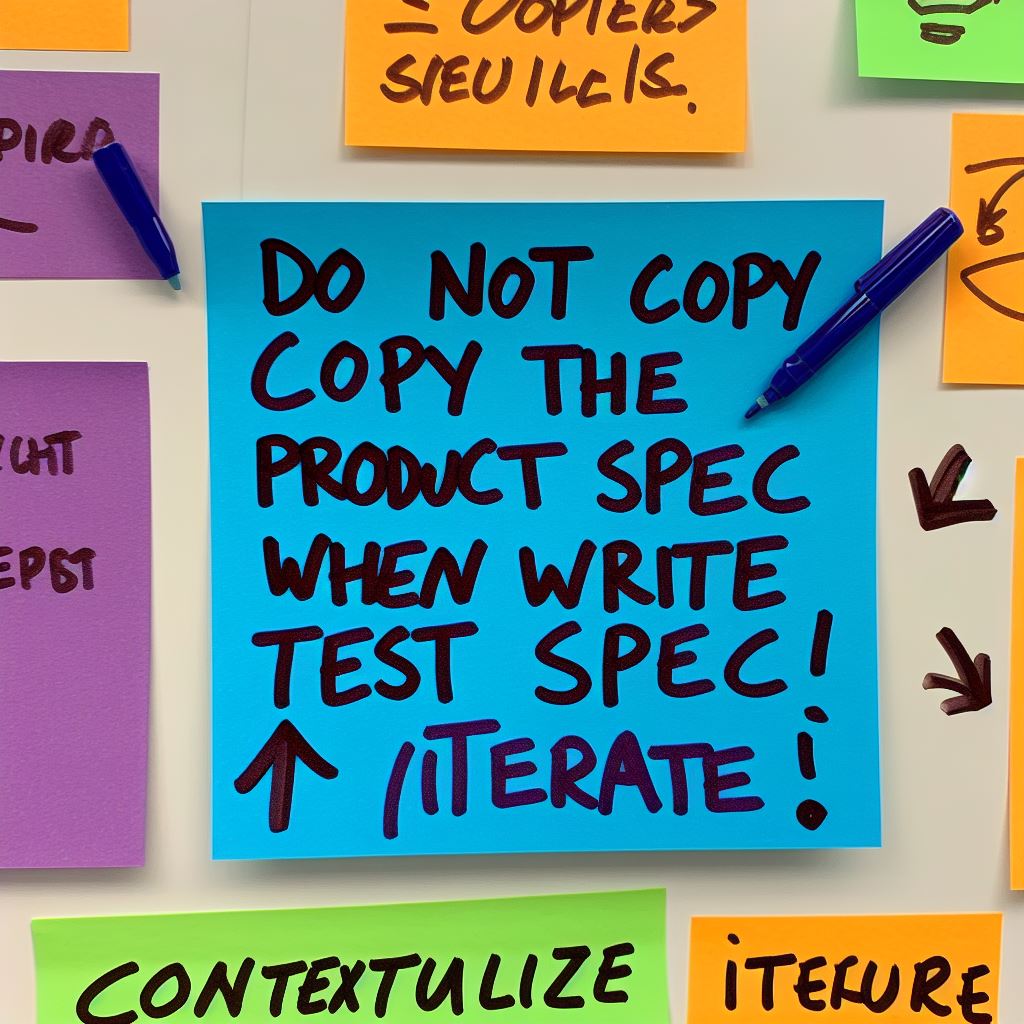 = COPIERS
SIEUILCIS.
PIRA
DO NOT COPY
COPY THE
PRODUCT SPEC
WHEN WRITE
TEST SPEC!
/ITERATE
CONTEXTULIZE
ITEKURE